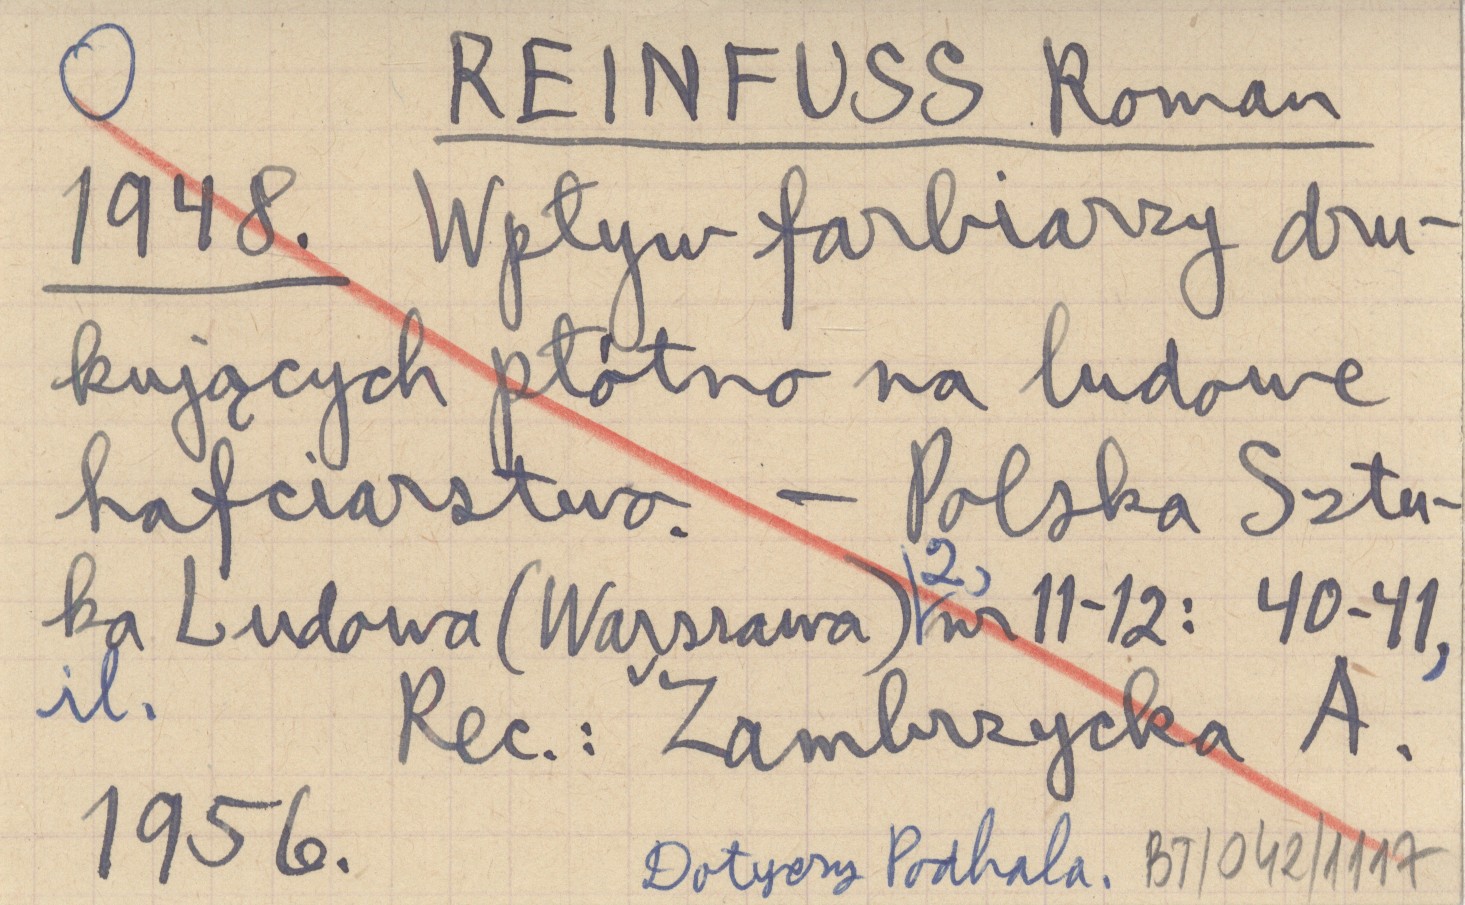 REINFUSS Roman
1948. Wpływ farbiarzy dru-
kujących płótno na ludowe
hafciarstwo. – Polska Sztu-
ka Ludowa (Warszawa) 2, nr 11-12: 40-41,
il. Rec.: Zambrzycka A.
1956.
Dotyczy Podhala. BT/042/1117